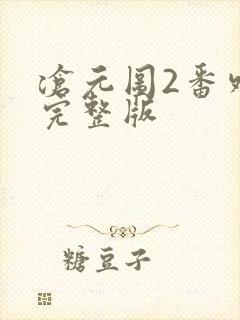 滄元图2番
完整版
糖豆子